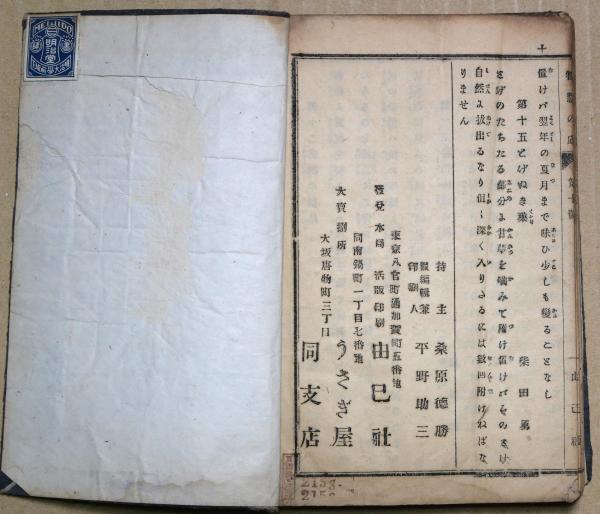 MEIJIDO
明治堂
十
置けバ翌年の夏月まで味ひ少しも變ることなし
第十五とげぬき藥 柴田
とげのたちたる部分に甘草を噛みて附け置けバそのとげ
自然に拔出るなり但し深く入りたるには數回附けねばな
りません
持主 桑原德勝
編輯兼印刷人 平野助三
東京八官町通加賀町五番地
發兌本局 活版印刷 由己社
同南鍋町一丁目七番地
大賣捌所 うさぎ屋
大坂唐物町三丁目
同支店
2153-